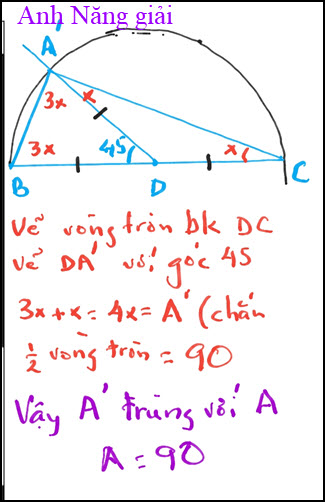 Anh Năng giải
A'
3x x
3x 45 x
B D C
Vẽ vòng tròn bk DC
vẽ DA' với góc 45
3x+x = 4x = A' (chắn
½ vòng tròn = 90
Vậy A' trùng với A
A = 90